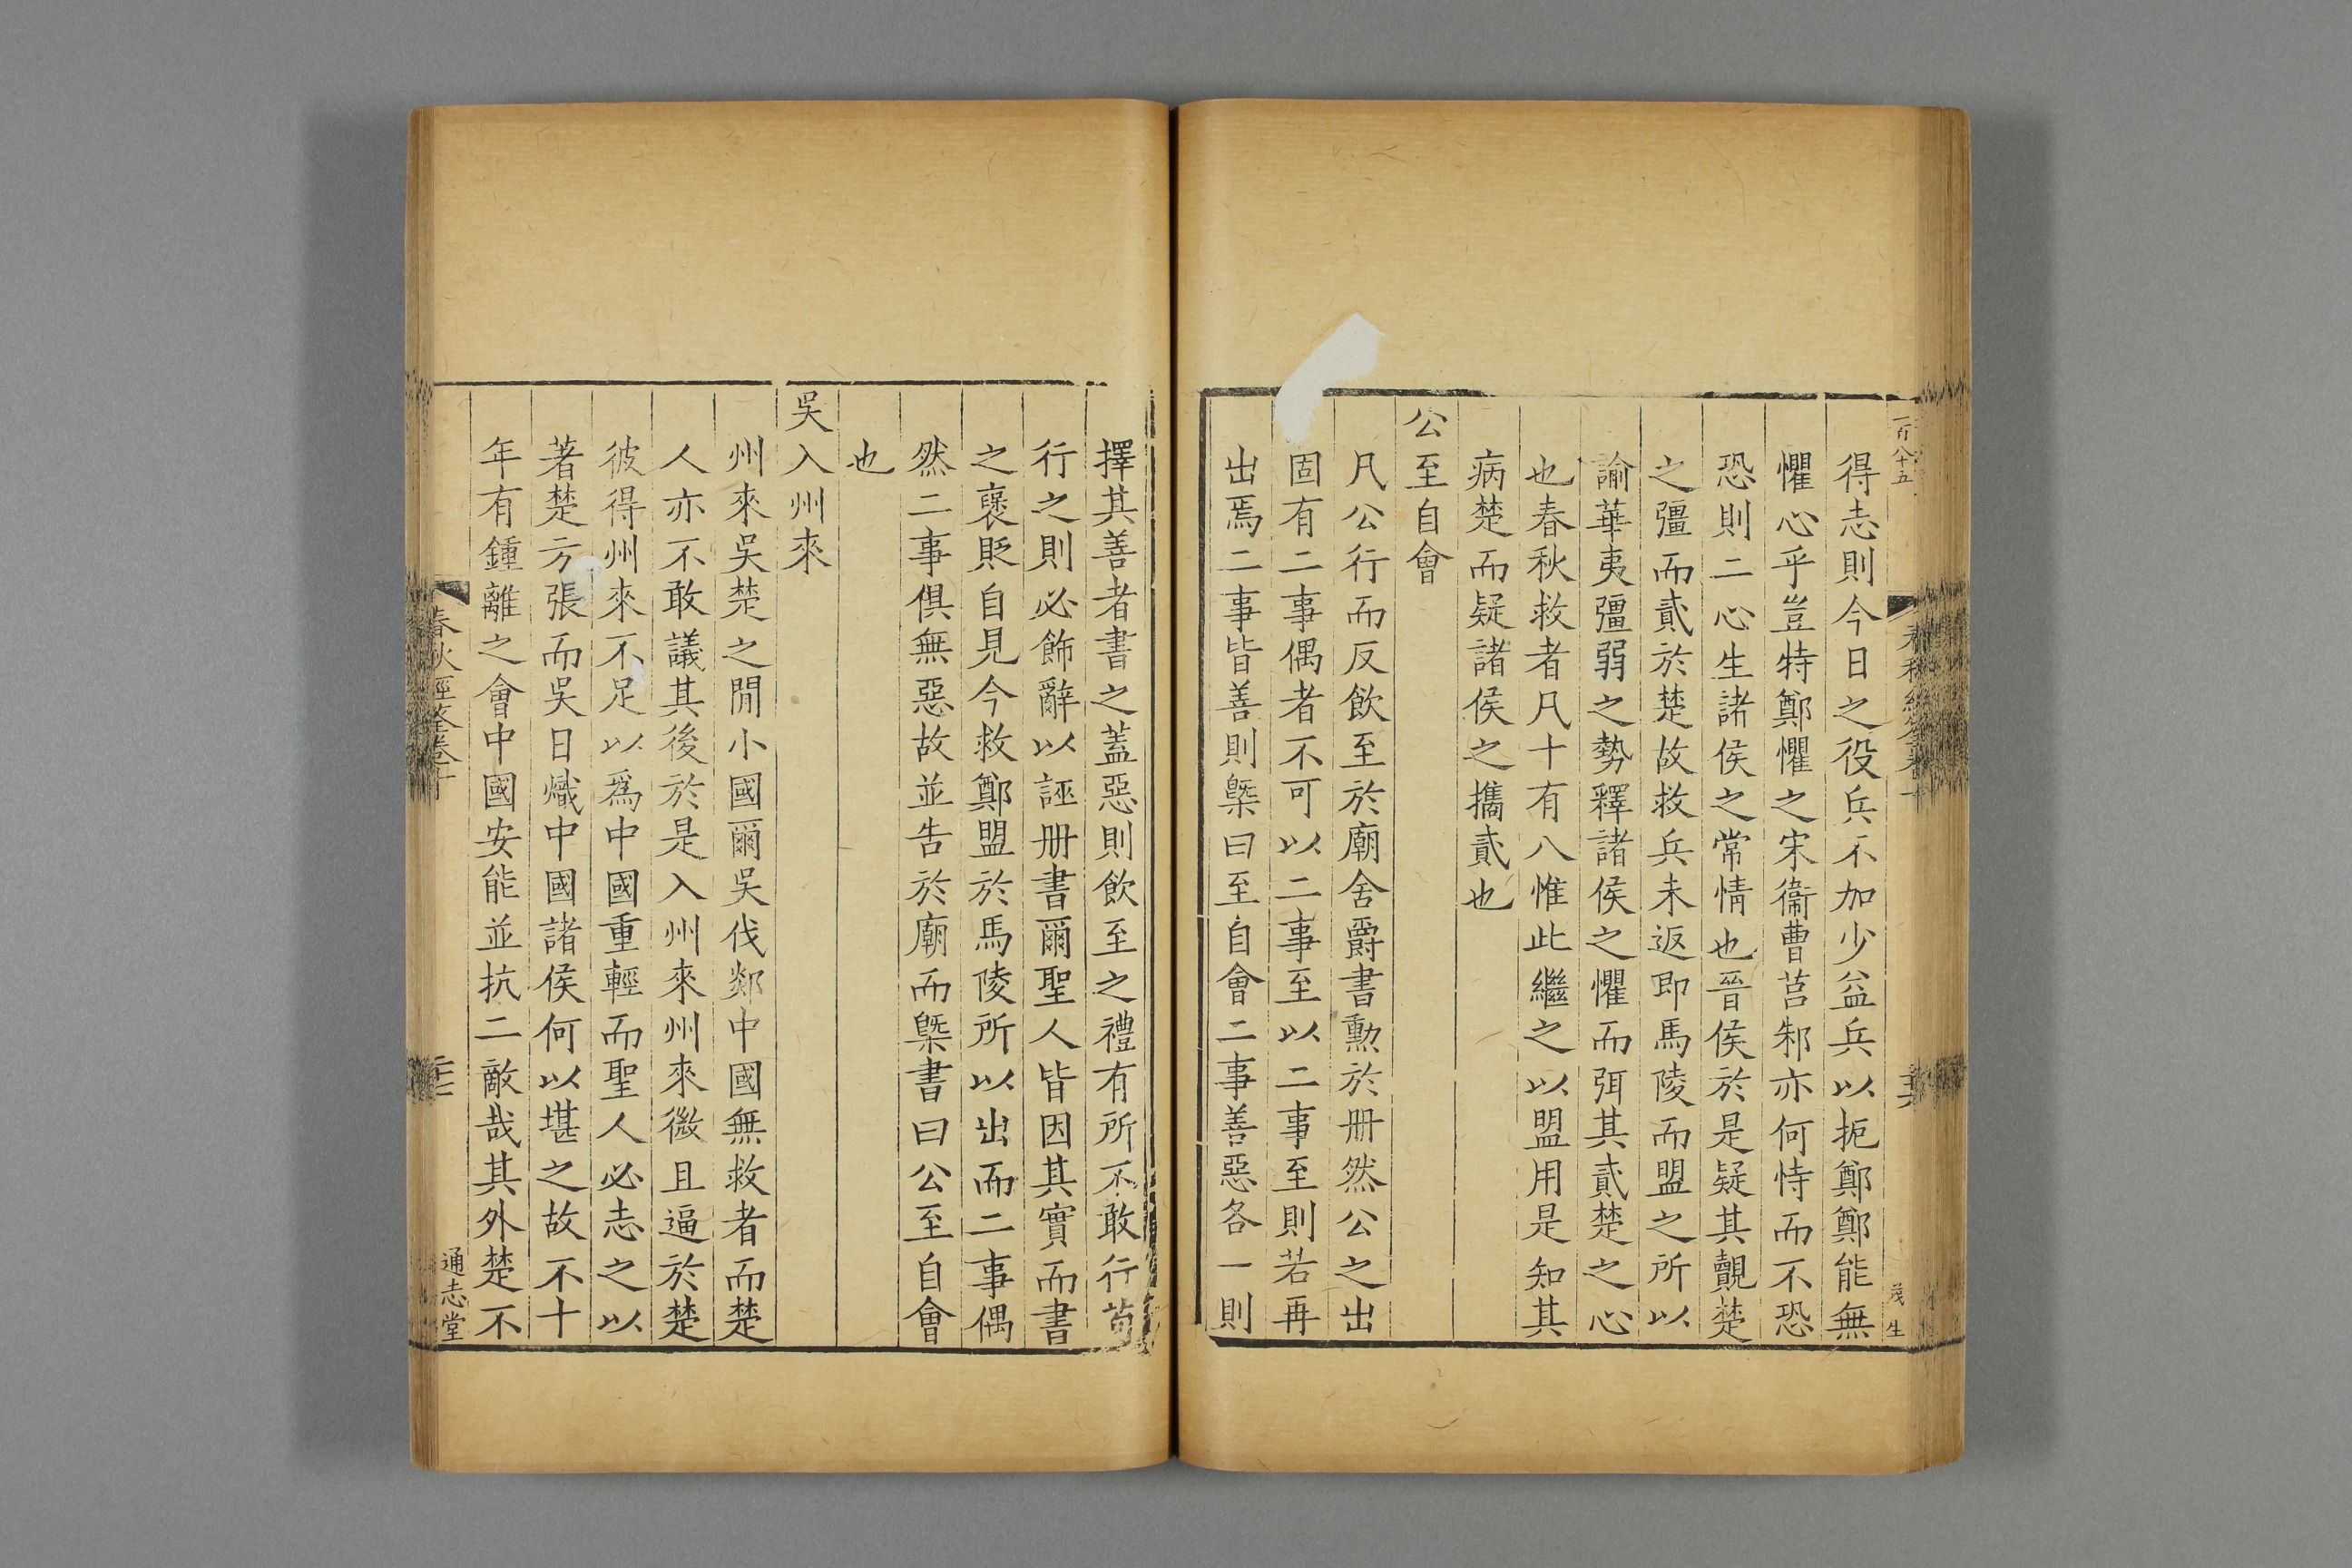 百八十五
得志則今日之役兵不加少益兵以扼鄭鄭能無
懼心乎豈特鄭懼之宋衞曹莒邾亦何恃而不恐
恐則二心生諸侯之常情也晉侯於是疑其覿楚
之彊而貳於楚故救兵未返即馬陵而盟之所以
諭華夷彊弱之勢釋諸侯之懼而弭其貳楚之心
也春秋救者凡十有八惟此繼之以盟用是知其
病楚而疑諸侯之攜貳也
公至自會
凡公行而反飲至於廟舍爵書勲於册然公之出
固有二事偶者不可以二事至以二事至則若再
出焉二事皆善則槩曰至自會二事善惡各一則
擇其善者書之蓋惡則飲至之禮有所不敢行苟
行之則必飾辭以誣册書爾聖人皆因其實而書
之褒貶自見今救鄭盟於馬陵所以出而二事偶
然二事俱無惡故並告於廟而槩書曰公至自會
也
吳入州來
州來吳楚之間小國爾吳伐郯中國無救者而楚
人亦不敢議其後於是入州來州來微且逼於楚
彼得州來不足以爲中國重輕而聖人必志之以
著楚方張而吳日熾中國諸侯何以堪之故不十
年有鍾離之會中國安能並抗二敵哉其外楚不
春秋經筌卷十
通志堂